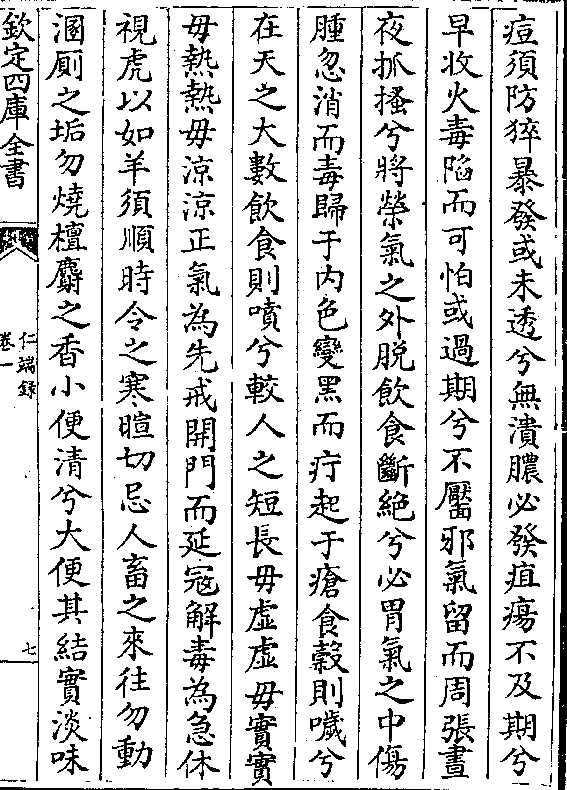 痘須防猝暴發或未透兮無潰膿必發疽瘍不及期兮
早收火毒陷而可怕或過期兮不靨邪氣留而周張晝
夜抓搔兮將榮氣之外脫飲食斷絕兮必胃氣之中傷
腫忽消而毒歸于内色變黑而疔起于瘡食穀則噦兮
在天之大數飲食則噴兮較人之短長毋虛虛毋實實
毋熱熱毋涼涼正氣為先戒開門而延寇解毒為急休
視虎以如羊須順時令之寒暄切忌人畜之來往勿動
溷厠之垢勿燒檀麝之香小便清兮大便其結實淡味
欽定四庫全書
仁端錄
卷一
七